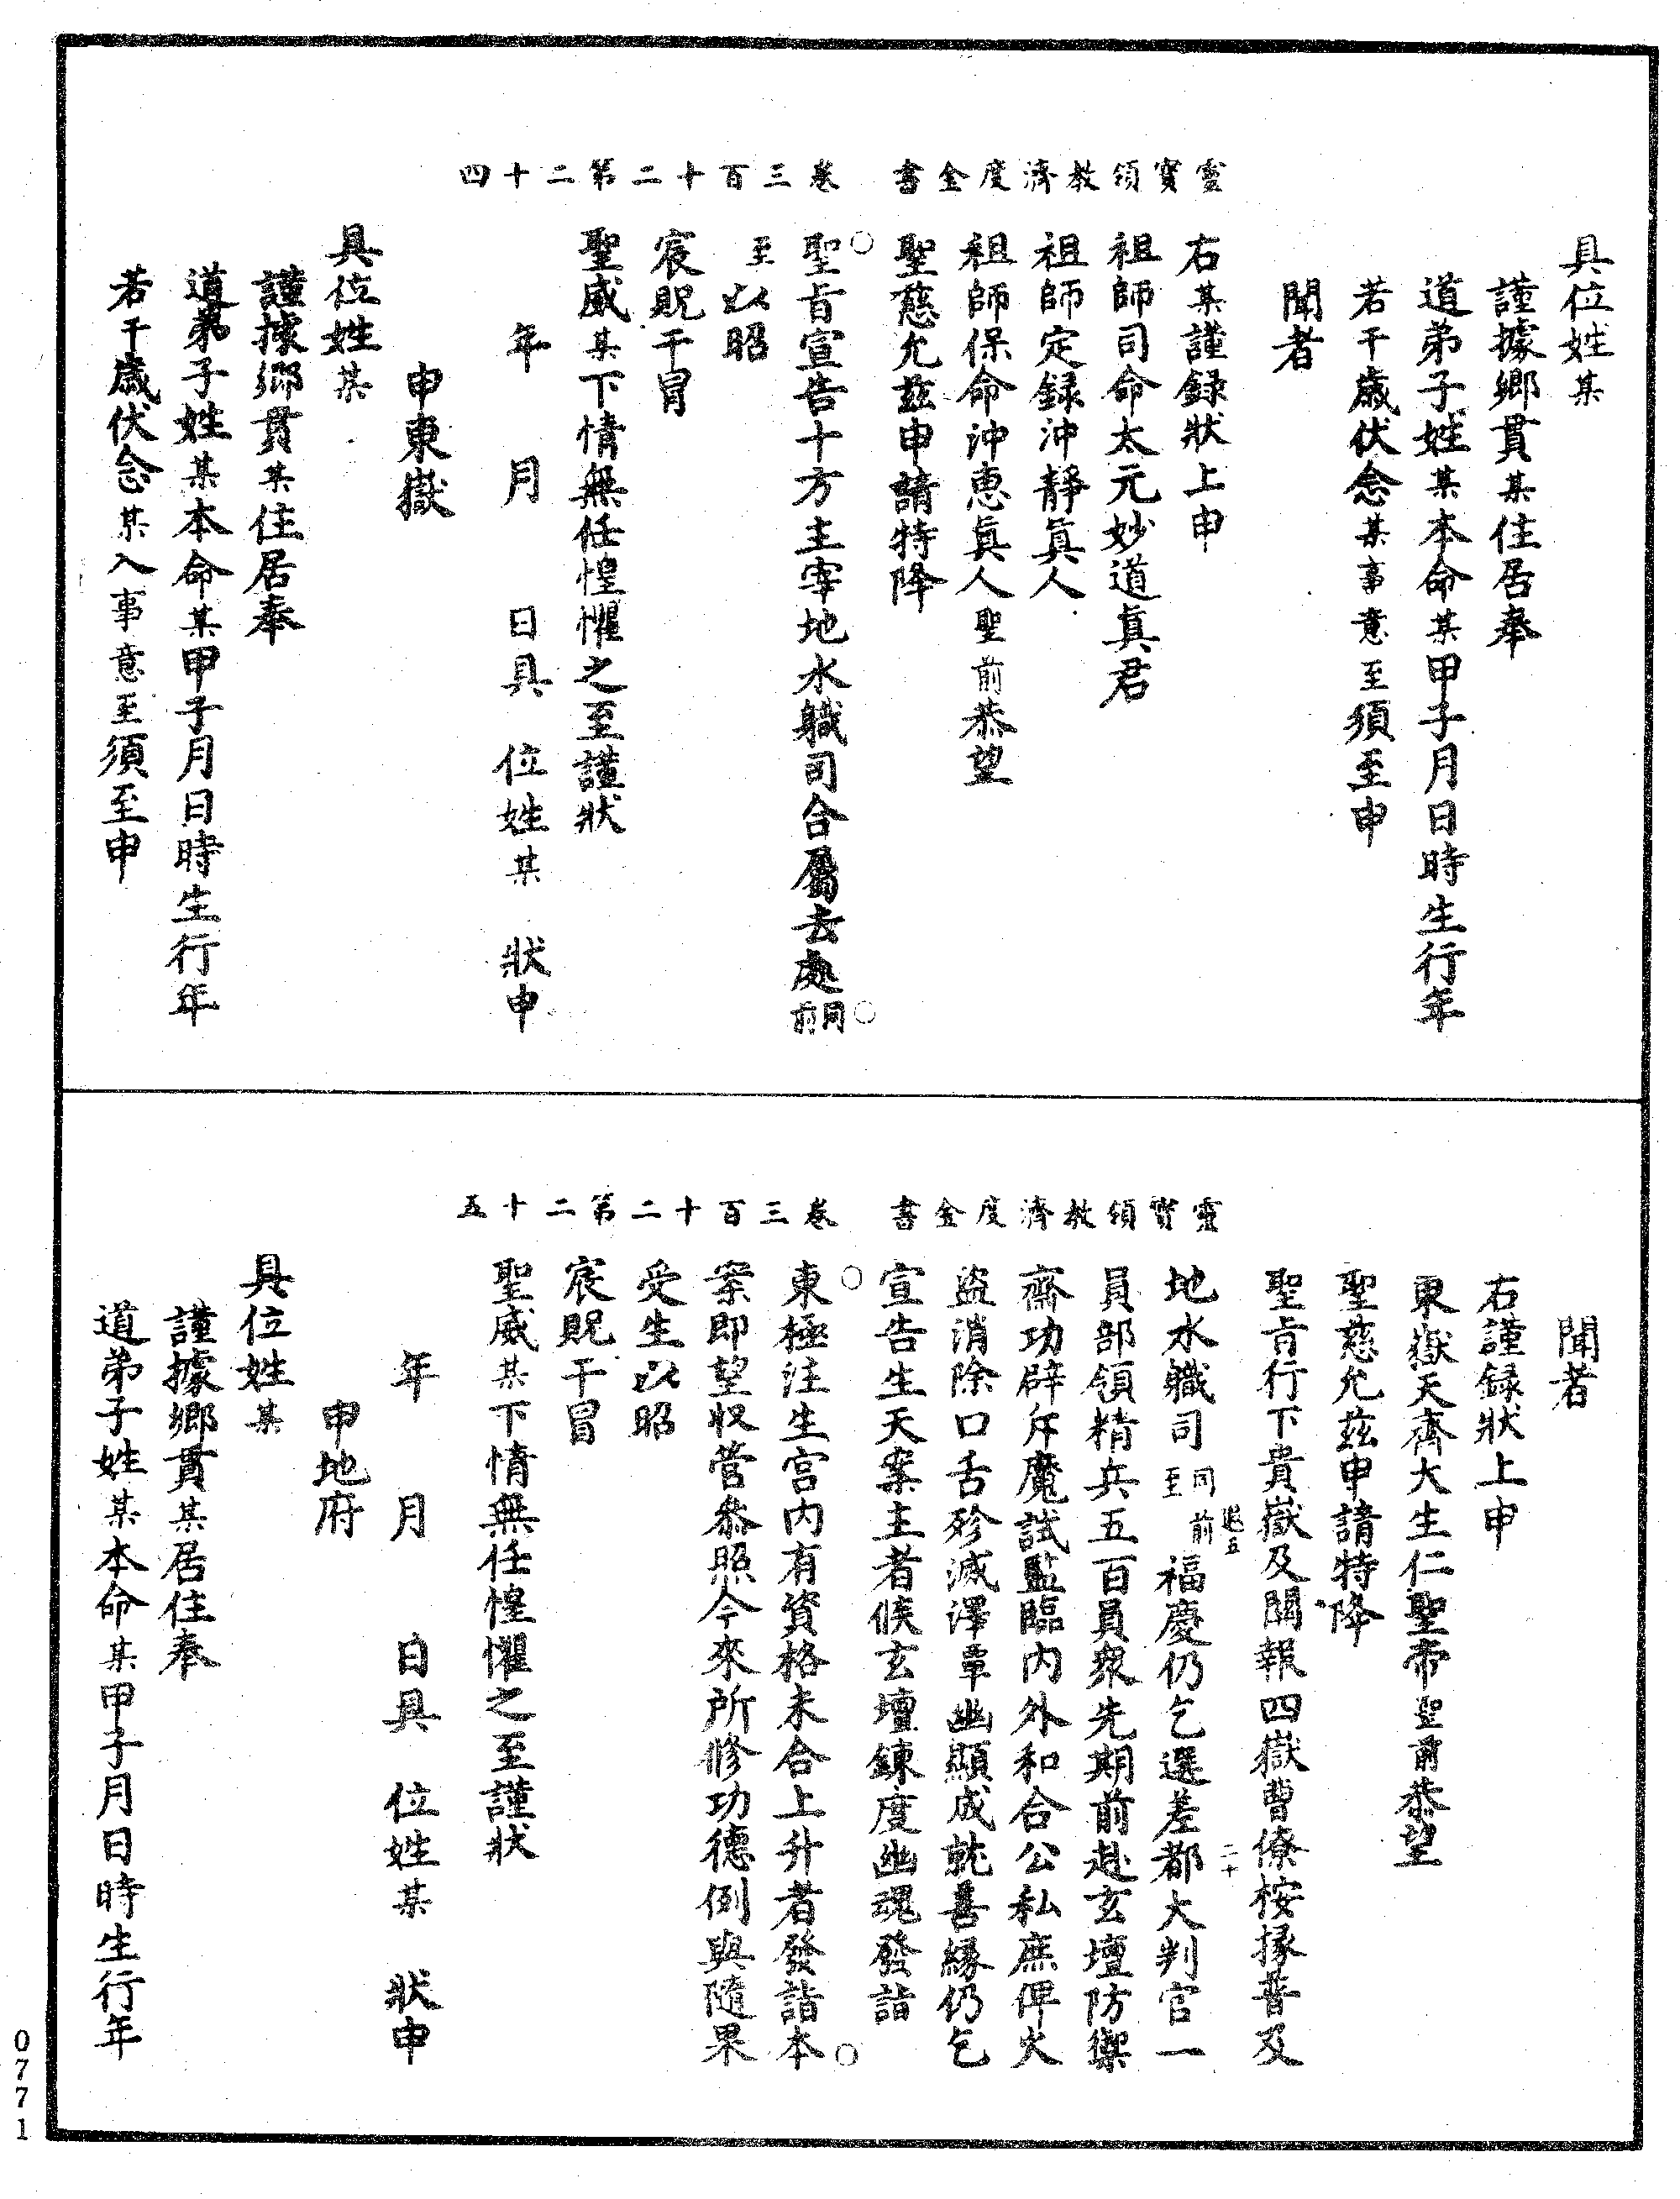 靈寶領教濟度金書　卷三百二十第二十四
具位姓某
謹據鄉貫某住居奉
道弟子姓某本命某甲子月日時生行年
若干歲伏念某事意至須至申
聞者
右某謹録狀上申
祖師司命太元妙道真君
祖師定録沖靜真人
祖師保命沖惠真人聖前恭望
聖慈允兹申請特降
聖旨宣告十方主宰地水職司合屬去處同前
至以昭
宸貺干冒
聖威某下情無任惶懼之至謹狀
年　月　日具　位姓某　狀申
申東嶽
具位姓某
謹據鄉貫某住居奉
道弟子姓某本命某甲子月日時生行年
若干歲伏念某入事意至須至申
靈寶領教濟度金書　卷三百二十第二十五
聞者
右謹録狀上申
東嶽天齊大生仁聖帝聖前恭望
聖慈允兹申請特降
聖旨行下貴嶽及關報四嶽曹僚桉掾普及
地水職司同前至福慶仍乞選差都大判官一
員部領精兵五百員衆先期前赴玄壇防禦
齋功辟斥魔試監臨内外和合公私庶俾火
盜消除口舌殄滅澤覃幽顯成就善縁仍乞
宣告生天案主者候玄壇鍊度幽魂發詣
東極注生宫内有資格未合上升者發詣本
案即望收管叅照今來所修功德例與隨果
受生以昭
宸貺干冒
聖威某下情無任惶懼之至謹狀
年　月　日具　位姓某　狀申
申地府
具位姓某
謹據鄉貫某居住奉
道弟子姓某本命某甲子月日時生行年
0771